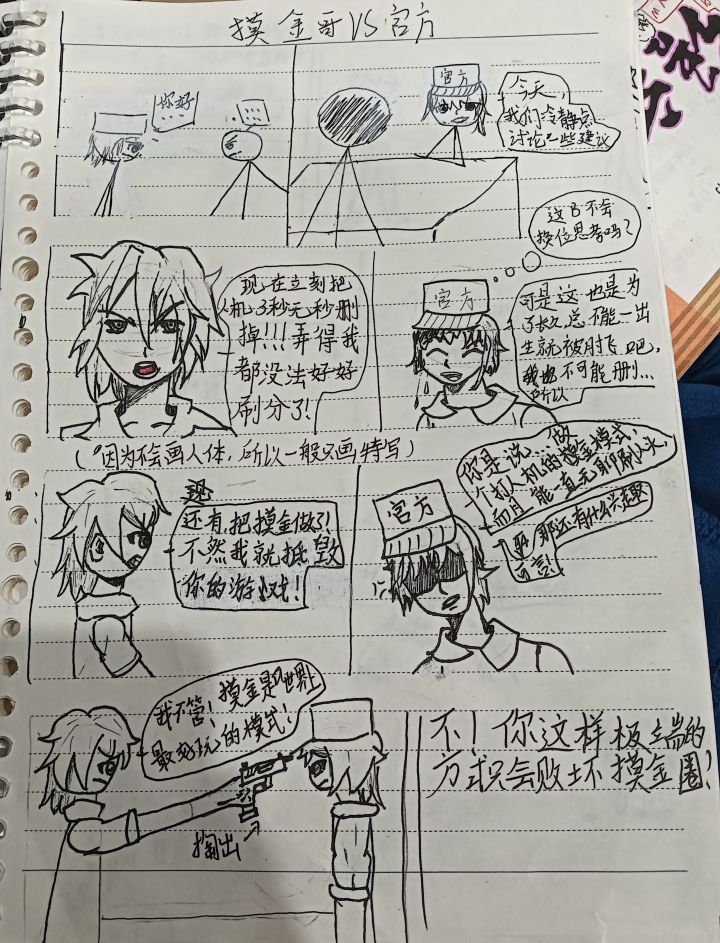 摸金哥VS官方
你好
……
……
官方
今天,
我们冷静点
讨论一些建议
这B不会
换位思考吗?
现在立刻把
机3秒无秒删
掉!!!弄得我
都没法好好
刷分了!
官方
可是这也是为
了长久总不能一出
生就被
吧,
我也不可能删...
所以
(因为不会画人体,所以一般只画特写)
还有,把摸金做了!
不然我就抵毁
你的游戏!
官方
你是说...做
个打人机的摸金模式,
而且能一直无聊刷人头,
那还有什么乐趣
可言
我不管!摸金是世界上
最好玩的模式!
掏出
不!你这样极端的
方式只会败坏摸金圈!